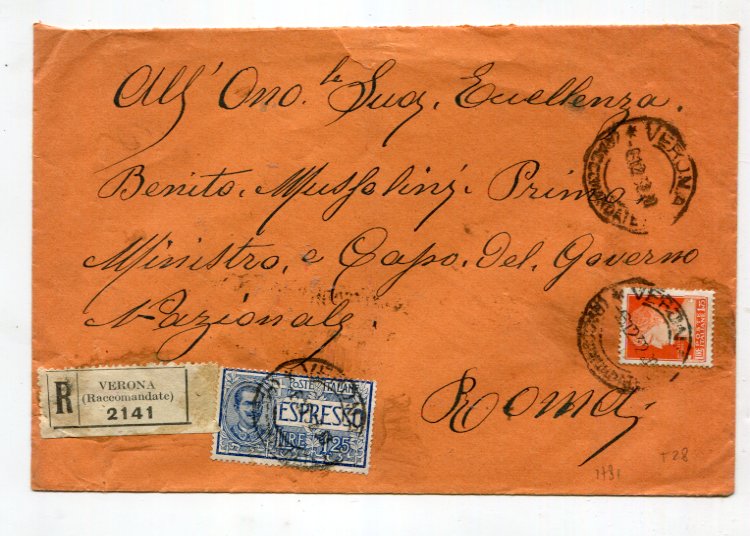 All' Ono.le Sua, Eccellenza,
Benito, Mussolini. Primo
Ministro, e Capo. Del, Governo
Nazionale.
Roma
VERONA
VERONA
R
VERONA
(Raccomandate)
2141
POSTE ITALIANE
ESPRESSO
LIRE 1,25
1781
T 28